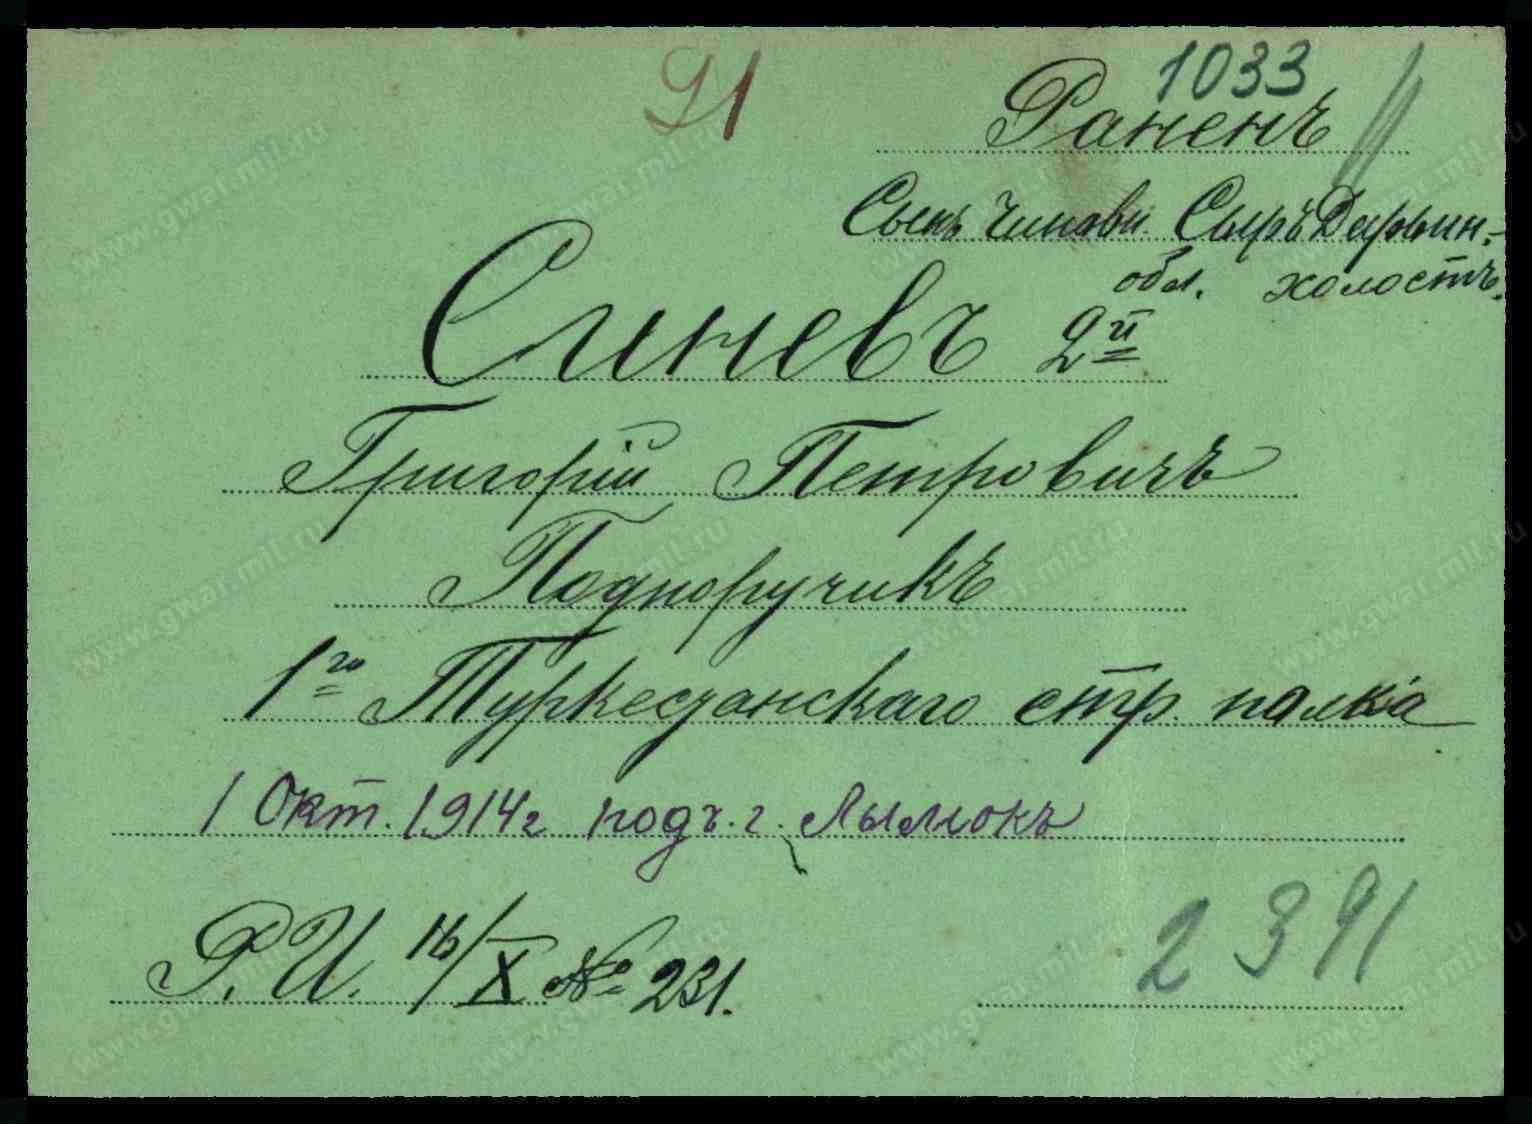 91
1033
Раненъ
Сынъ чиновн. Сыръ Дарьин.
обл. холостъ.
Синевъ 2й
Григорій Петровичъ
Подпоручикъ
1го Туркестанскаго стр. полка
1 Окт. 1914г подъ. г. Лымокъ
Р.И. 16/X № 231.
2391
www.gwar.mil.ru